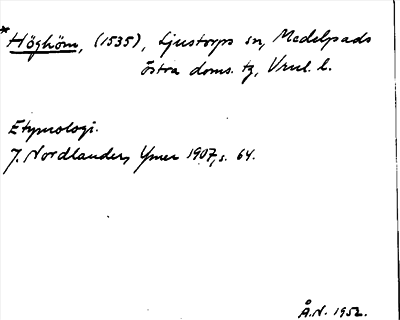 *Höghöm, (1535), Ljustorps sn, Medelpads
östra doms. tg, Vnul. l.
Etymologi.
J. Nordlander, Ymer 1907, s. 64.
Å.N. 1952.